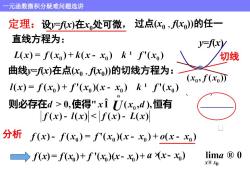 一元函数微积分疑难问题选讲
定理：设y=f(x)在x₀处可微， 过点(x₀ , f(x₀))的任一
直线方程为：
y=f(x)
L(x) = f(x₀) + k(x - x₀) k ¹ f'(x₀)
切线
曲线y=f(x)在点(x₀ , f(x₀))的切线方程为：
(x₀, f(x₀))
l(x) = f(x₀) + f'(x₀)(x - x₀) k ¹ f'(x₀)
则必存在d > 0,使得" x Î Ů(x₀,d),恒有
f(x) - l(x) < f(x) - L(x)
分析 f(x) - f(x₀) = f'(x₀)(x - x₀) + o(x - x₀)
f(x) = f(x₀) + f'(x₀)(x - x₀) + a ×(x - x₀) lima ® 0
x® x₀